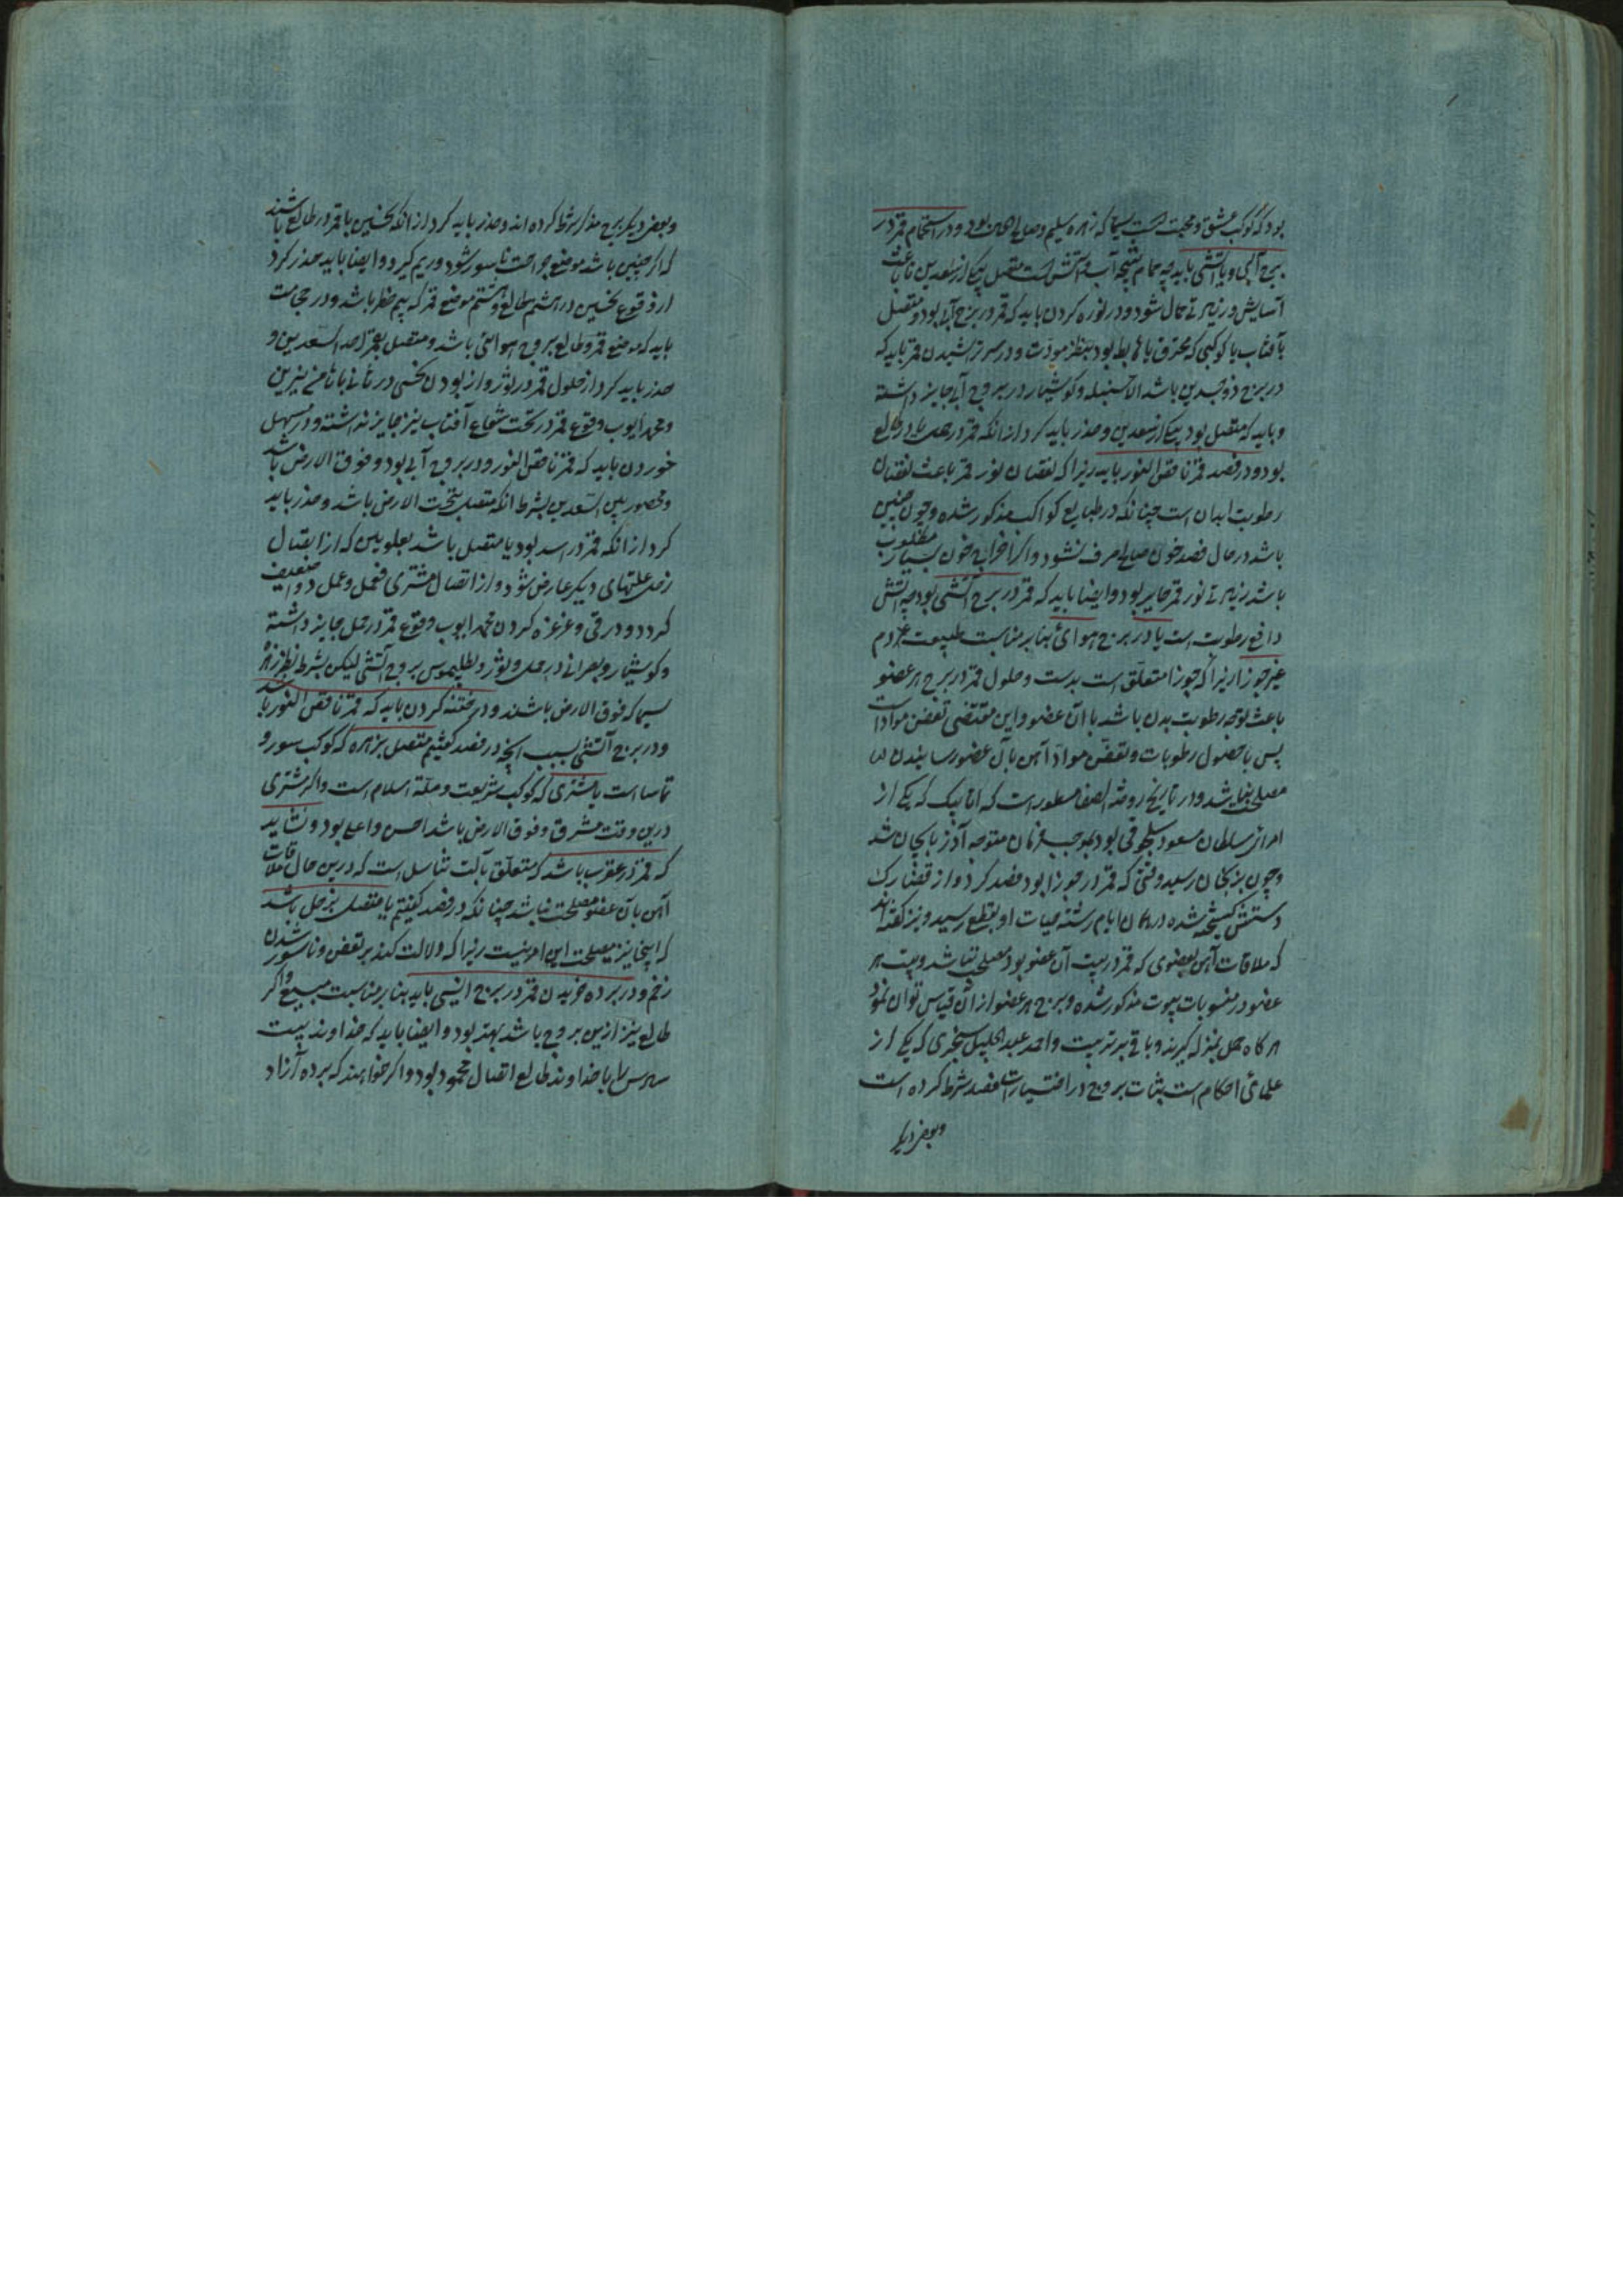 بود که کوکب عشق و محبت است سیما که زهره سلیم و صالح الحال بود و در استحمام قمر در
برج آبی و یا آتشی باید چه حمام نتیجه آب و آتش است متصل بیکی از سعدین تا باعث
آسایش و زینت حال شود و در نوره کردن باید که قمر در برج آبی بود و متصل
بآفتاب یا کوکبی که محترق یا هابط بود بنظر مودت و در سر تراشیدن قمر باید که
در برج ذو جسدین باشد الا سنبله و کوشیار در بروج آبی جایز داشته
و باید که متصل بود بیکی از سعدین و حذر باید کرد از آنکه قمر در حمل یا در طالع
بود و در فصد قمر ناقص النور باید زیرا که نقصان نور قمر باعث نقصان
رطوبت ابدان است چنانکه در طبایع کواکب مذکور شده و چون چنین
باشد در حال فصد خون صالح صرف نشود و اگر اخراج خون بسیار مطلوب
باشد زیادتی نور قمر جایز بود و ایضا باید که قمر در برج آتشی بود چه آتش
دافع رطوبت است یا در برج هوائی بنا بر مناسبت طبیعت دم
غیر جوزا زیرا که جوزا متعلق است بدست و حلول قمر در برج هر عضو
باعث توجه رطوبت بدن باشد با آن عضو و این مقتضی تعفن مواد است
پس با حصول رطوبات و تعفن مواد آهن بآن عضو رسانیدن
مصلحت نباشد و در تاریخ روضة الصفا مسطور است که اتابیک که یکی از
امرای سلطان مسعود سلجوقی بود بموجب فرمان متوجه آذربایجان شد
و چون بزنجان رسید وقتی که قمر در جوزا بود فصد کرد و از قضا رک
دستش شده در همان ایام رشته حیات او بقطع رسید و نیز گفته‌اند
که ملاقات آهن بعضوی که قمر در بیت آن عضو بود مصلحت نباشد و بیت هر
عضو در منسوبات بیوت مذکور شده و برج هر عضو از آن قیاس توان نمود
هرگاه حمل بمنزله گیرند و باقی بر ترتیب و احمد عبد الجلیل سجزی که یکی از
علمای احکام است بثبات بروج در اختیارات فصد شرط کرده است
و بعضی دیگر
و بعضی دیگر برج مذکر شرط کرده‌اند و حذر باید کرد از آنکه نحسین با قمر در طالع باشند
که اگر چنین باشد موضع جراحت ناسور شود و ریم گیرد و ایضا باید حذر کرد
از وقوع نحسین در هشتم طالع و هشتم موضع قمر که بیم خطر باشد و در حجامت
باید که موضع قمر و طالع بروج هوائی باشد و متصل بقمر احد السعدین و
حذر باید کرد از حلول قمر در ثور و از بودن نحسی در ثانی یا ثامن نیرین
و محمد ایوب وقوع قمر در تحت شعاع آفتاب نیز جایز نداشته و در مسهل
خوردن باید که قمر ناقص النور و در بروج آبی بود و فوق الارض باشد
و محصور بین السعدین بشرط آنکه متصل بتحت الارض باشد و حذر باید
کرد از آنکه قمر در اسد بود یا متصل باشد بعلویین که از اتصال
زحل علتهای دیگر عارض شود و از اتصال مشتری فعل و عمل دوا ضعیف
گردد و در قی و غرغره کردن محمد ایوب وقوع قمر در حمل جایز داشته
و کوشیار و بصرانی در حمل و ثور و بطلیموس بروج آتشی لیکن بشرط نظر زهره
سیما که فوق الارض باشند و در ختنه کردن باید که قمر ناقص النور باشد
و در برج آتشی بسبب آنچه در فصد گفتیم متصل بزهره که کوکب سور و
تماسا است یا مشتری که کوکب شریعت و ملة اسلام است و اگر مشتری
درین وقت مشرق و فوق الارض باشد احسن و اعلی بود و نشاید
که قمر در عقرب باشد که متعلق بآلت تناسل است که درین حال ملاقات
آهن بآن عضو مصلحت نباشد چنانکه در فصد گفتیم یا متصل بزحل باشد
که اینجا نیز مصلحت این امر نیست زیرا که دلالت کند بر تعفن و ناسور شدن
زخم و در برده خریدن قمر در برج انسی باید بنا بر مناسبت مبیع و اگر
طالع نیز ازین بروج باشد بهتر بود و ایضا باید که خداوند بیت
سادس را با خداوند طالع اتصال محمود بود و اگر خواهند که برده آزاد